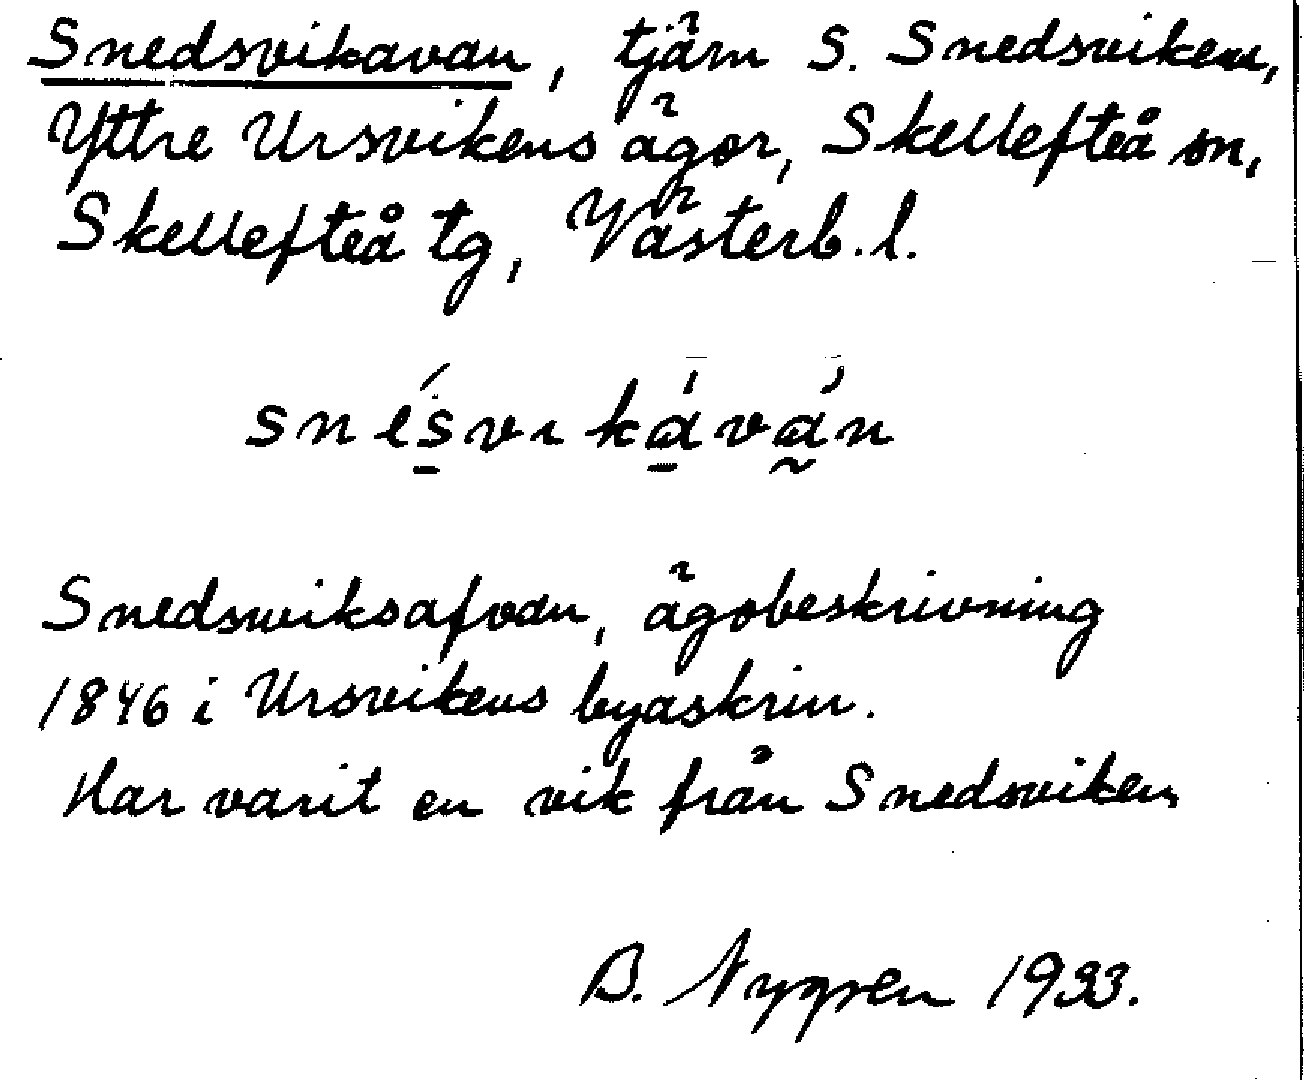 Snedsvikavan, tjärn S. Snedsviken,
Yttre Ursvikens ägor, Skellefteå sn,
Skellefteå tg, Västerb. l.
snésvikáván
Snedsviksafvan, ägobeskrivning
1846 i Ursvikens byaskrin.
Har varit en vik från Snedsviken
B. Nygren 1933.